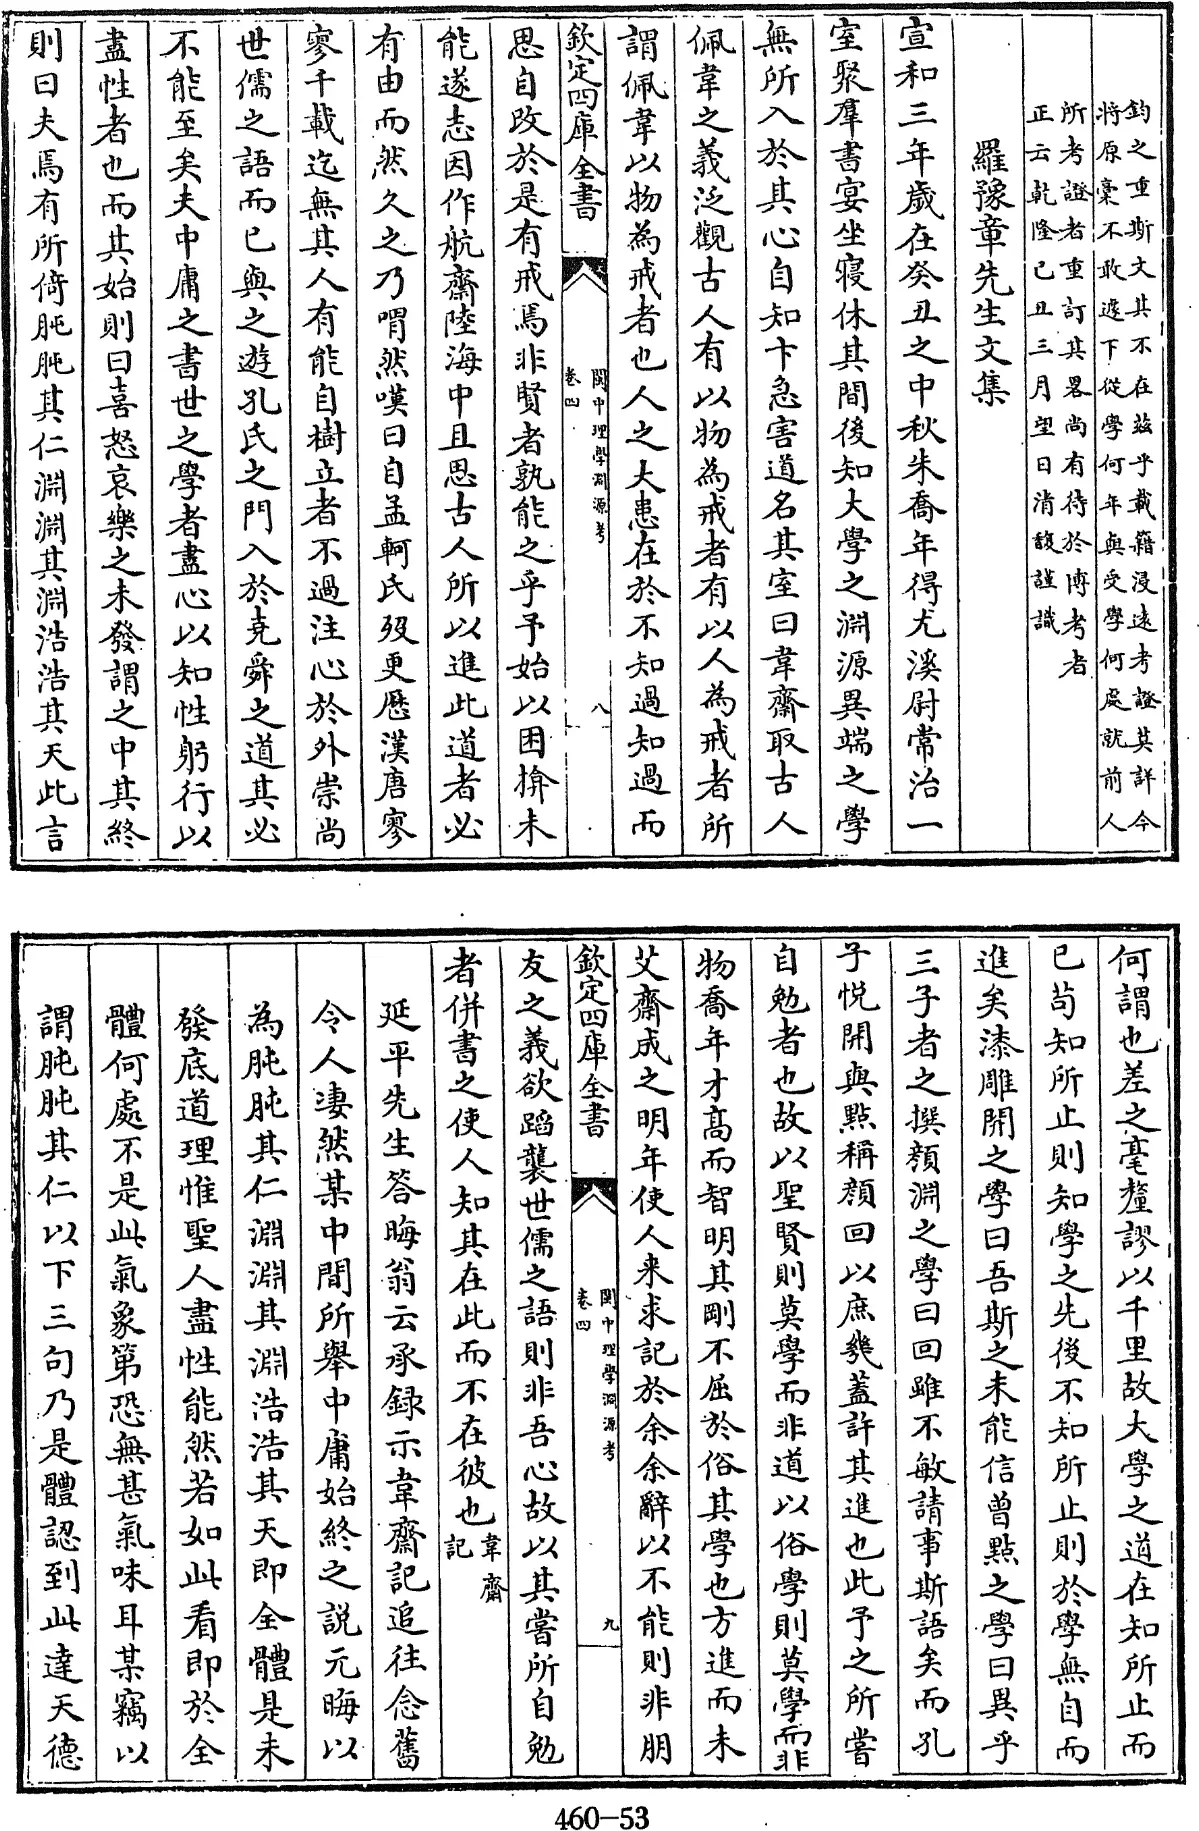 鈞之重斯文其不在茲乎載籍浸遠考證其詳今
將原稾不敢遽下從學何年與受學何處就前人
所考證者重訂其畧尚有待於博考者
正云乾隆己丑三月望日清馥謹識
羅豫章先生文集
宣和三年歲在癸丑之中秋朱喬年得尤溪尉常治一
室聚羣書宴坐寢休其間後知大學之淵源異端之學
無所入於其心自知卞急害道名其室曰韋齋取古人
佩韋之義泛觀古人有以物為戒者有以人為戒者所
謂佩韋以物為戒者也人之大患在於不知過知過而
欽定四庫全書
閩中理學淵源考
卷四
八
思自改於是有戒焉非賢者孰能之乎予始以困揜未
能遂志因作航齋陸海中且思古人所以進此道者必
有由而然久之乃喟然嘆曰自孟軻氏歿更歷漢唐寥
寥千載迄無其人有能自樹立者不過注心於外崇尚
世儒之語而已與之遊孔氏之門入於堯舜之道其必
不能至矣夫中庸之書世之學者盡心以知性躬行以
盡性者也而其始則曰喜怒哀樂之未發謂之中其終
則曰夫焉有所倚肫肫其仁淵淵其淵浩浩其天此言
何謂也差之毫釐謬以千里故大學之道在知所止而
已茍知所止則知學之先後不知所止則於學無自而
進矣漆雕開之學曰吾斯之未能信曾點之學曰異乎
三子者之撰顏淵之學曰回雖不敏請事斯語矣而孔
子悅開與點稱顏回以庶幾蓋許其進也此予之所嘗
自勉者也故以聖賢則莫學而非道以俗學則莫學而非
物喬年才高而智明其剛不屈於俗其學也方進而未
艾齋成之明年使人來求記於余余辭以不能則非朋
欽定四庫全書
閩中理學淵源考
卷四
九
友之義欲蹈襲世儒之語則非吾心故以其嘗所自勉
者併書之使人知其在此而不在彼也韋齋
記
延平先生答晦翁云承錄示韋齋記追往念舊
令人凄然某中間所舉中庸始終之說元晦以
為肫肫其仁淵淵其淵浩浩其天即全體是未
發底道理惟聖人盡性能然若如此看即於全
體何處不是此氣象第恐無甚氣味耳某竊以
謂肫肫其仁以下三句乃是體認到此達天德
460-53